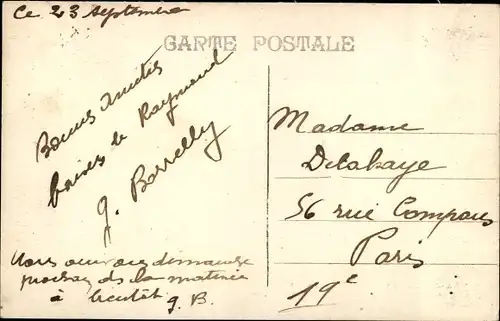 Ce 23 septembre
CARTE POSTALE
Bonnes amitiés
baisers de Raymond
G. Borrelly
Nous arrivons dimanche
prochain ds la matinée
à bientôt G. B.
Madame
Delahaye
56 rue Compans
Paris
19e